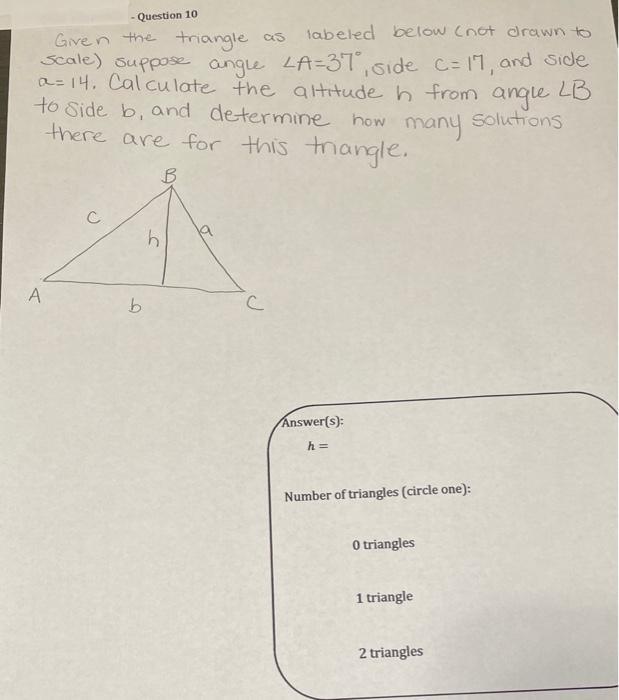 - Question 10
Given the triangle as labeled below (not drawn to
scale) suppose angle ∠A=37°, side c=17, and side
a=14. Calculate the altitude h from angle ∠B
to side b, and determine how many solutions
there are for this triangle.
B
c
h
a
A
b
C
Answer(s):
h =
Number of triangles (circle one):
0 triangles
1 triangle
2 triangles